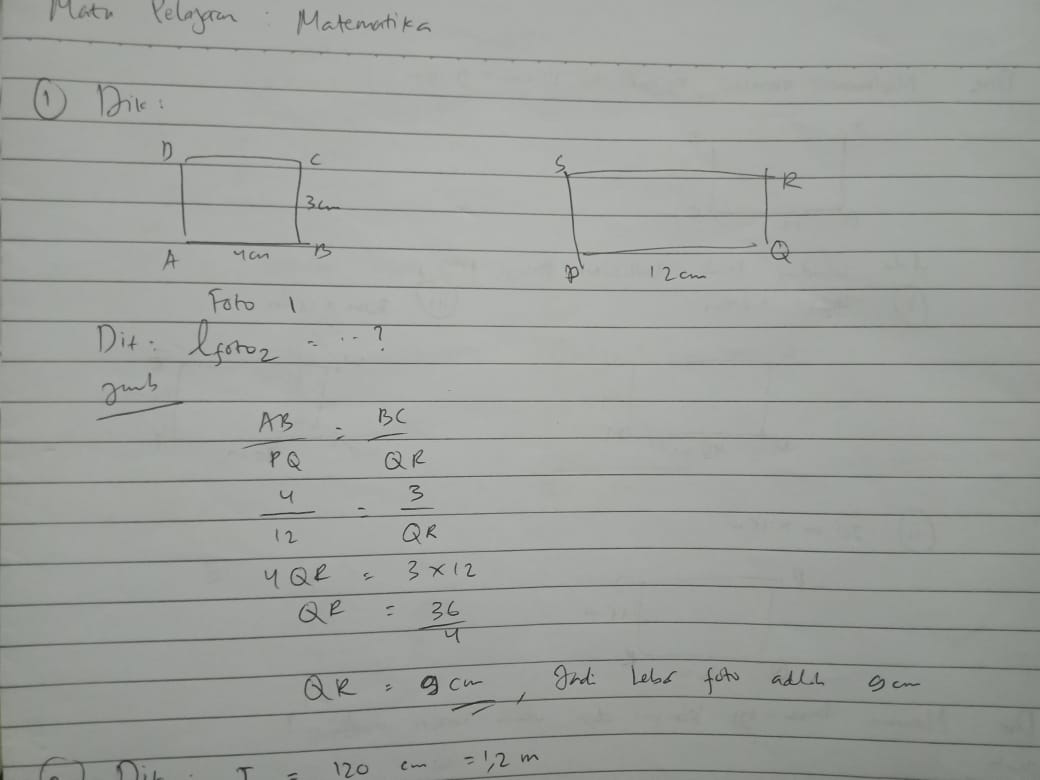 Mata Pelajaran : Matematika
① Dik :
D C S R
3cm
A 4cm B P 12 cm Q
Foto 1
Dit : lfoto2 = ... ?
Jwb
AB = BC
PQ QR
4 = 3
12 QR
4 QR = 3 x 12
QR = 36
4
QR = 9 cm , Jadi lebar foto adlh 9 cm
Dik : T = 120 cm = 1,2 m